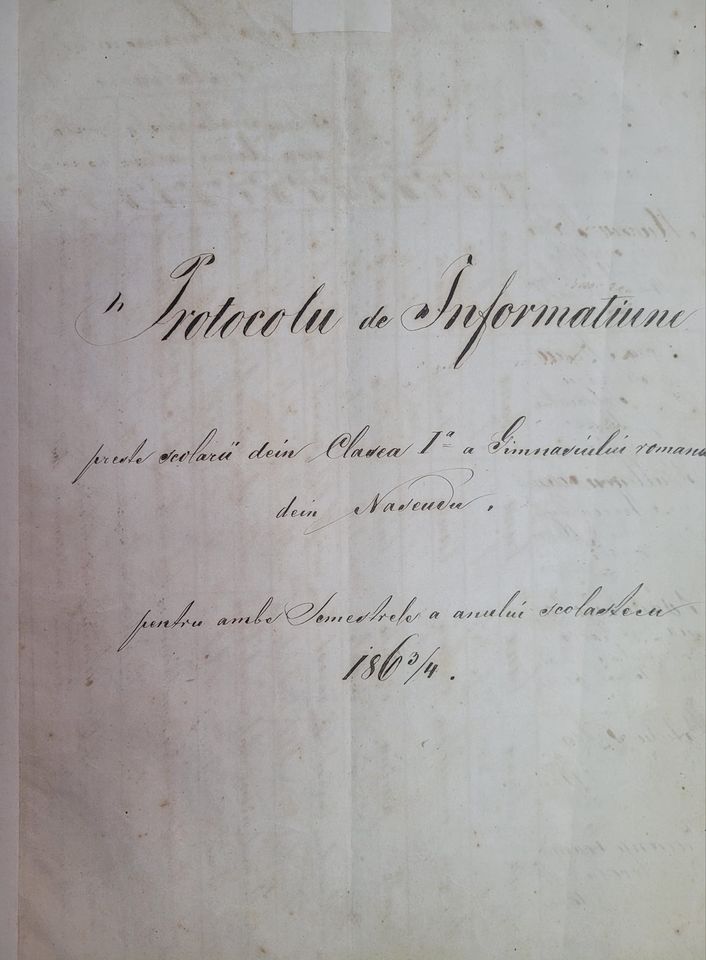 Protocolu de Informatiune
preste scolarii dein Clasea Iª a Gimnasiului romanu
dein Naseudu.
pentru ambe Semestrele a anului scolastecu
186 3/4.